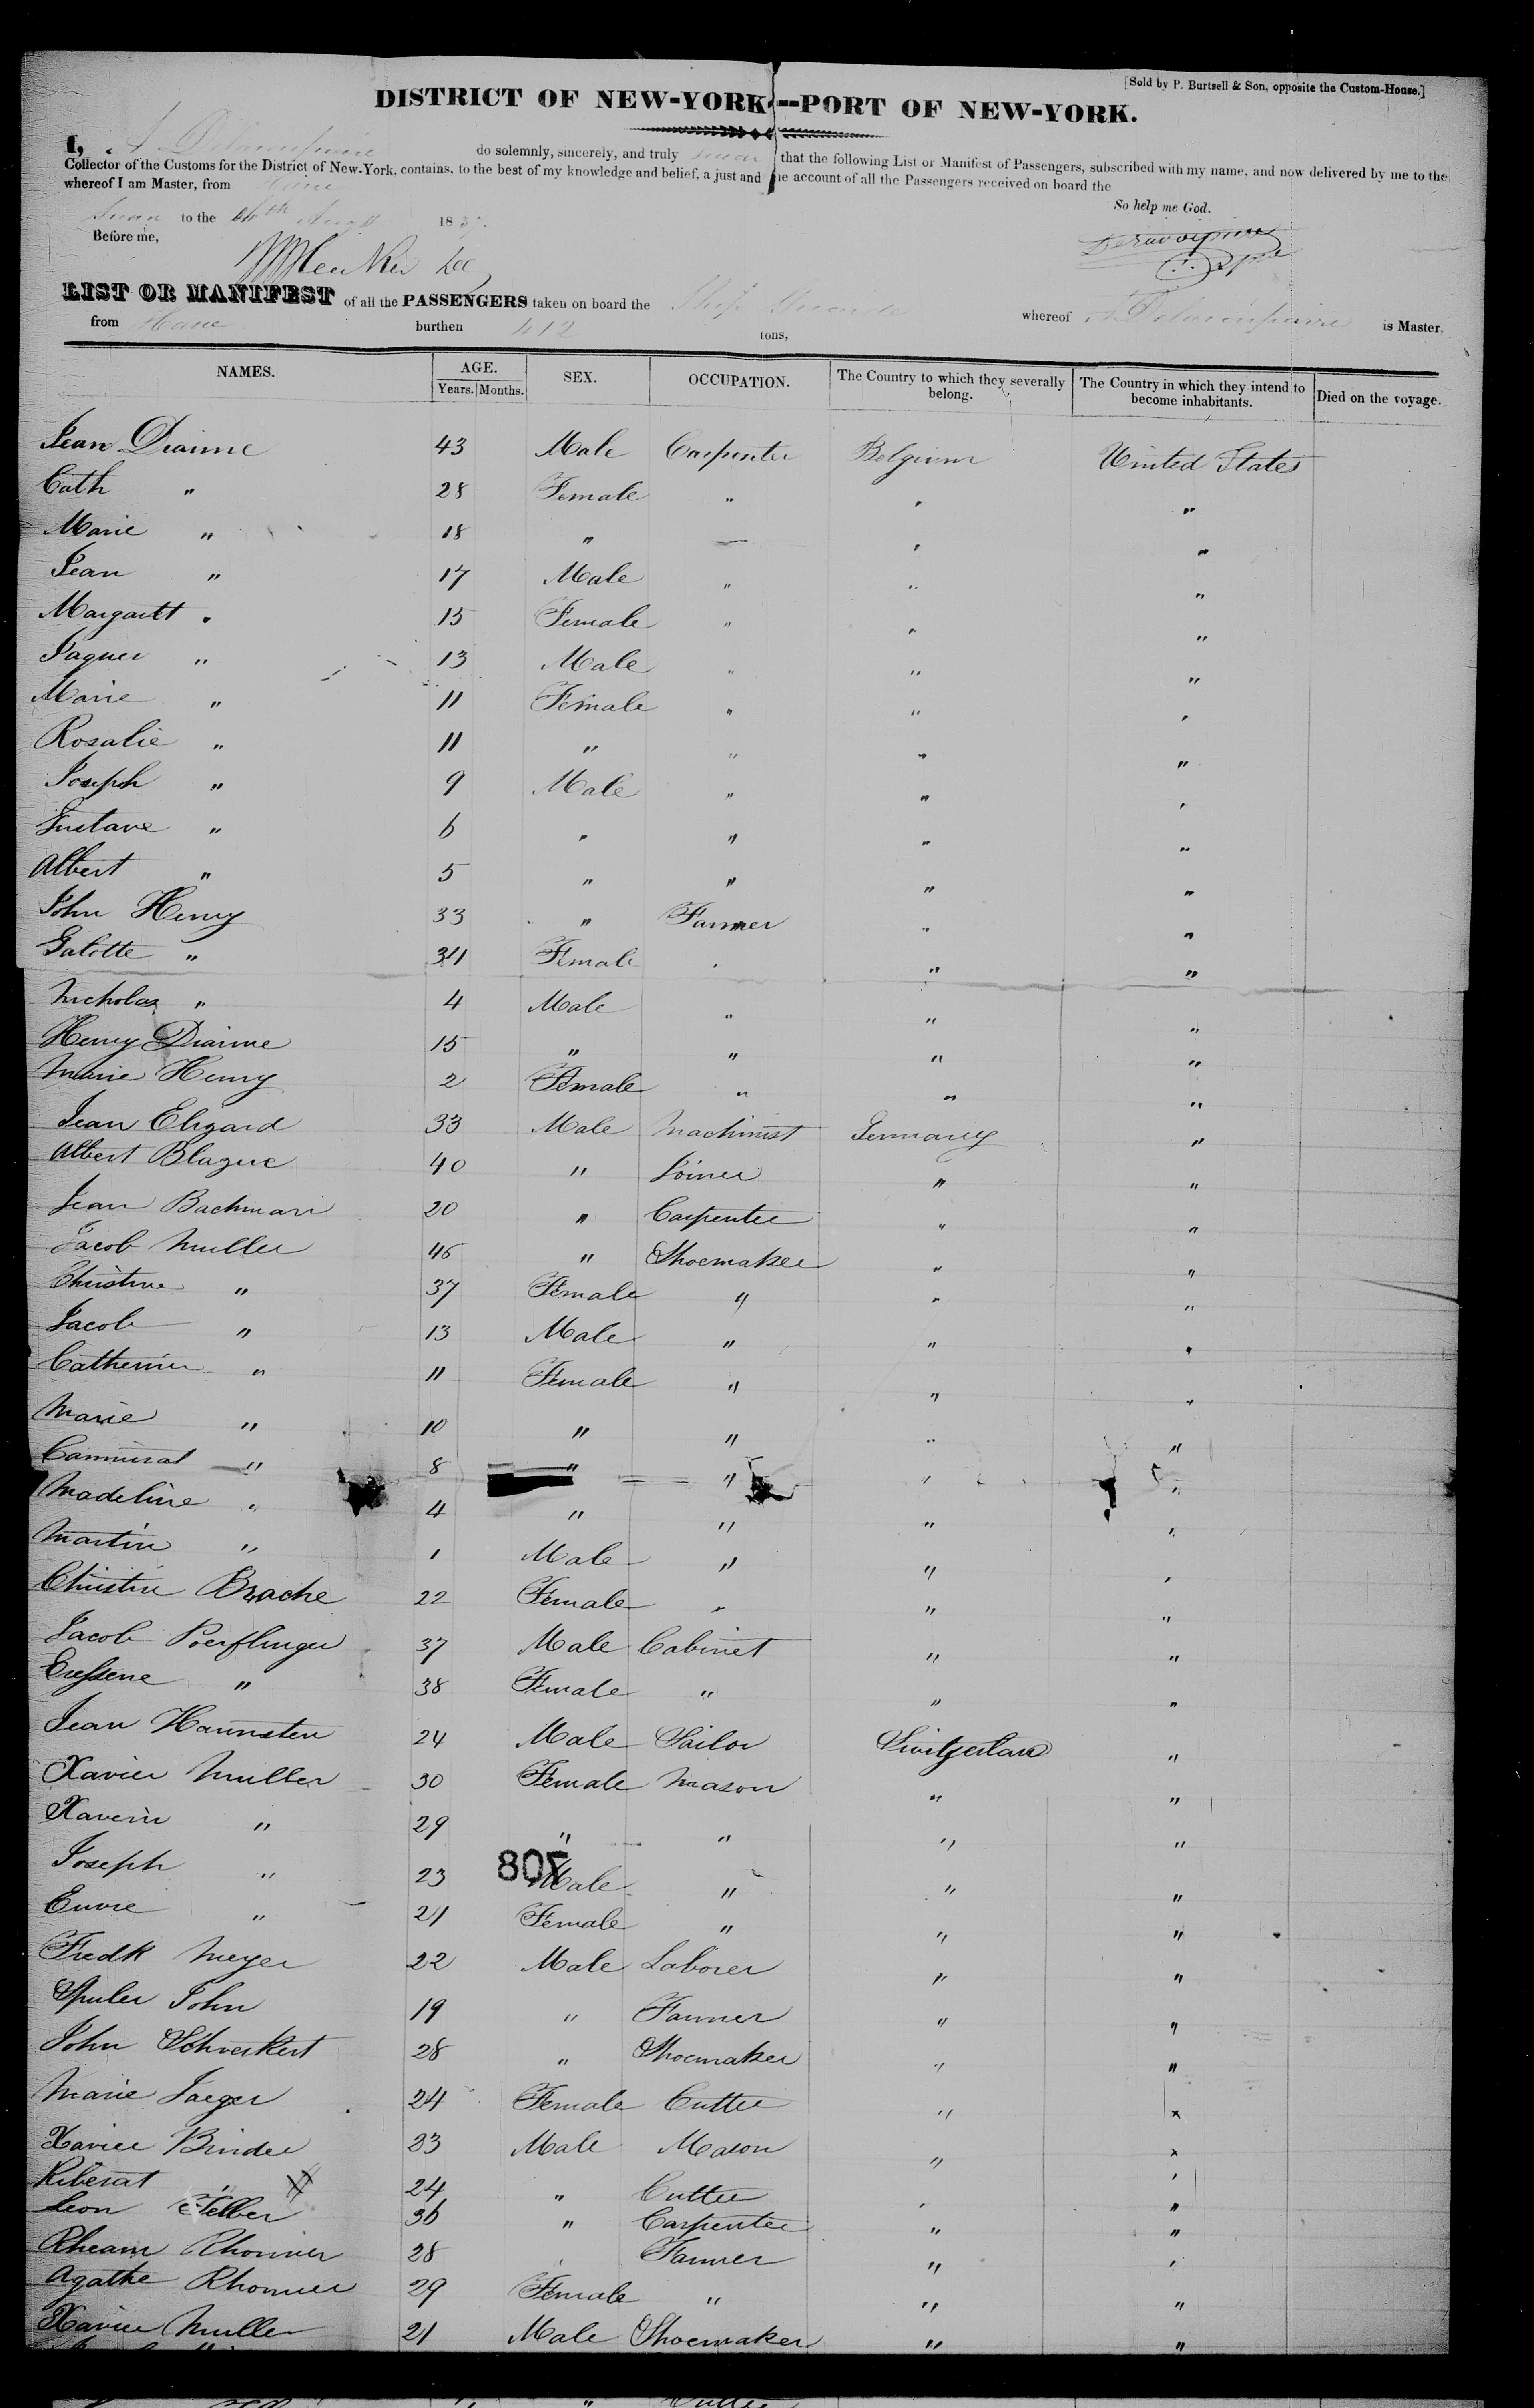 [Sold by P. Burtsell & Son, opposite the Custom-House.]
DISTRICT OF NEW-YORK--PORT OF NEW-YORK.
I, A do solemnly, sincerely, and truly swear that the following List or Manifest of Passengers, subscribed with my name, and now delivered by me to the
Collector of the Customs for the District of New-York, contains, to the best of my knowledge and belief, a just and true account of all the Passengers received on board the
whereof I am Master, from
So help me God.
to the 18
Before me,
LIST OR MANIFEST of all the PASSENGERS taken on board the Ship whereof is Master,
from burthen 412 tons,
NAMES. AGE. SEX. OCCUPATION. The Country to which they severally belong. The Country in which they intend to become inhabitants. Died on the voyage.
Years. Months.
Jean Dianne 43 Male Carpenter Belgium United States
Cath " 28 Female " " "
Marie " 18 " — " "
Jean " 17 Male " " "
Margartt " 15 Female " " "
Jaques " 13 Male " " "
Marie " 11 Female " " "
Rosalie " 11 " " " "
Joseph " 9 Male " " "
Gustave " 6 " " " "
Albert " 5 " " " "
John Henry 33 " Farmer " "
" 34 Female " " "
Nicholas " 4 Male " " "
Henry Dianne 15 " " " "
Marie Henry 2 Female " " "
Jean Eligard 33 Male Machinist Germany "
Albert Blazue 40 " Joiner " "
Jean Bachman 20 " Carpenter " "
Jacob Muller 46 " Shoemaker " "
Christine " 37 Female " " "
Jacob " 13 Male " " "
Catherine " 11 Female " " "
Marie " 10 " " " "
" 8 " " " "
Madeline " 4 " " " "
Martin " 1 Male " " "
Christine Brache 22 Female " " "
Jacob Poerflinger 37 Male Cabinet " "
" 38 Female " " "
Jean Haunsten 24 Male Switzerland "
Xavier Muller 30 Female Mason " "
Xaverie " 29 " " " "
Joseph " 23 Male " " "
" 21 Female " " "
808
Fredk Meyer 22 Male Laborer " "
Spuler John 19 " Farmer " "
John 28 " Shoemaker " "
Marie Jaeger 24 Female Cutter " "
Xavier Binder 23 Male Mason " "
Riberat " 24 " Cutter " "
Leon Felber 36 " Carpenter " "
Rhonner 28 " Farmer " "
Agathe Rhonner 29 Female " " "
Xavier Muller 21 Male Shoemaker " "